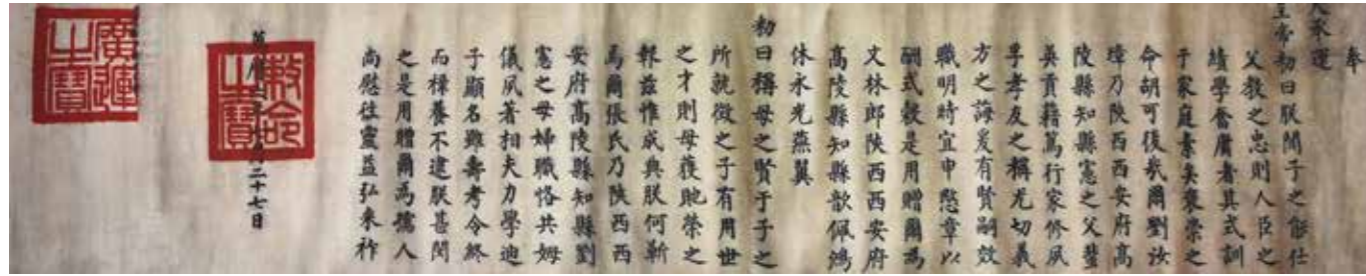 奉
天承運
皇帝勑曰朕聞子之能仕
父教之忠則人臣之
績學奮庸者其式訓
于家庭素矣褒崇之
命胡可後哉爾劉汝
璋乃陝西西安府高
陵縣知縣憲之父蜚
英貢籍篤行家修夙
孚孝友之稱尤切義
方之誨爰有賢嗣效
職明時宜申慭章以
酬式穀是用贈爾為
文林郎陝西西安府
高陵縣知縣歆佩鴻
休永光燕翼
勑曰稱母之賢于子之
所就徵之子有用世
之才則母蒦貤榮之
報茲惟成典朕何靳
焉爾張氏乃陝西西
安府高陵縣知縣劉
憲之母婦職恪共姆
儀夙著相夫力學迪
子顯名雖壽考令終
而祿養不逮朕甚閔
之是用贈爾為孺人
尚慰徃靈益弘來祚
萬曆二十七日
敕命之寶
廣運之寶